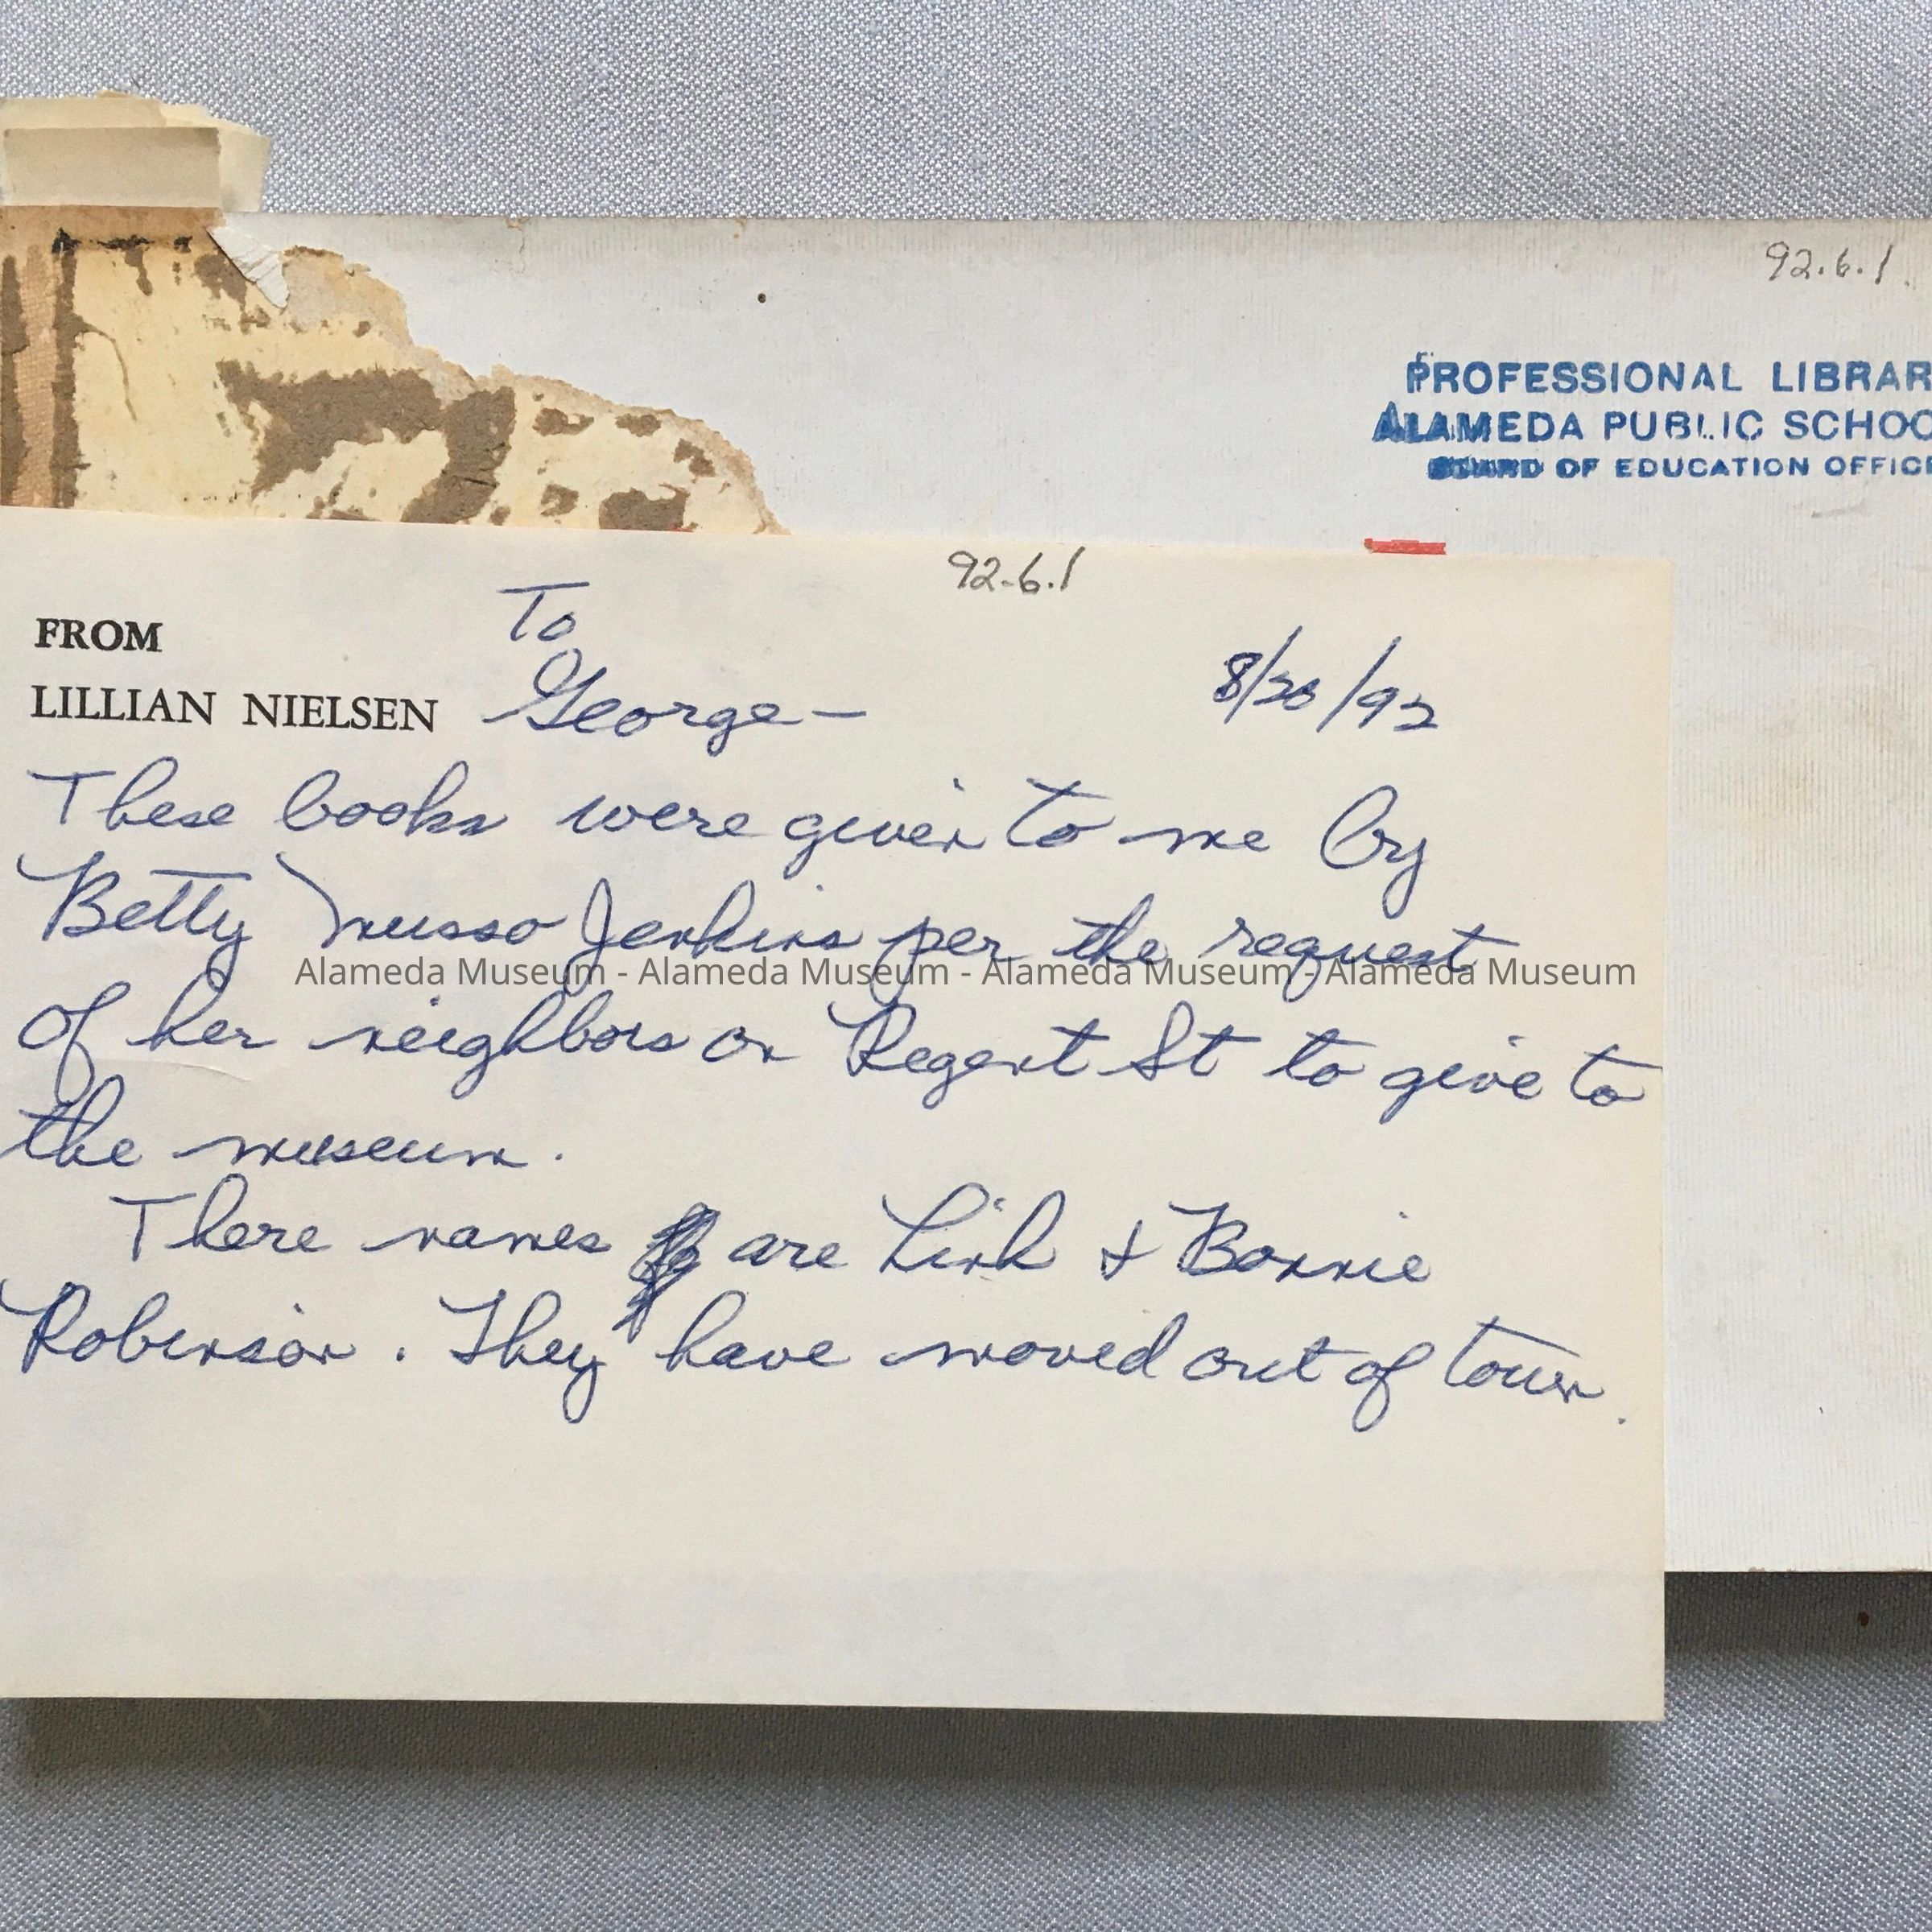 92.6.1
PROFESSIONAL LIBRAR
ALAMEDA PUBLIC SCHOO
BOARD OF EDUCATION OFFICE
92-6.1
FROM
LILLIAN NIELSEN
To
George-
8/28/92
These books were given to me by
Betty Musso Jenkins per the request
Alameda Museum - Alameda Museum - Alameda Museum - Alameda Museum
of her neighbors on Regent St to give to
the museum.
There names are Link & Bonnie
Robinson. They have moved out of town.